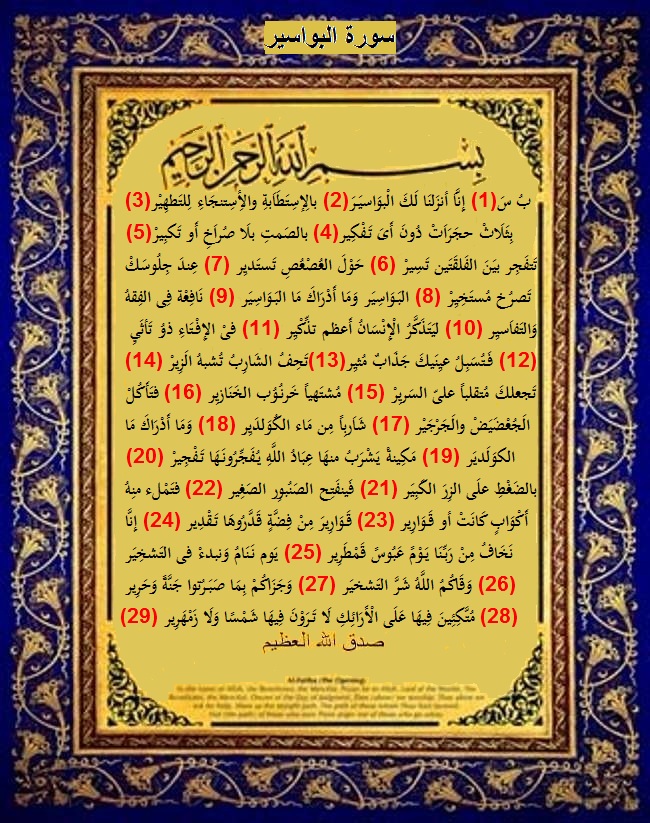 سورة البواسير
بِسْمِ اللَّهِ الرَّحْمَنِ الرَّحِيمِ
بُ سَ(1) إنَّا أنزَلنَا لَكَ الْبوَاسيَرَ(2) بالإِستَطَابةِ والأِسِتنجَاءِ لِلتَطهِيْر(3)
بِثَلَاثْ حجَرَاتْ دُونَ أىَ تَفْكِير(4) بالصَمتِ بلَا صُرَاخِ أَو تَكبِيْر(5)
تَتفَجِر بيَنَ الفَلقَتَين تَسِيْر (6) حَوْلَ العُصْعُصِ تَستَدِير (7) عِندَ جِلُوسَكْ
تَصرُخ مُستَخِيْر (8) البَـوَاسِيَر وَمَا أَدْرَاكَ مَا البَـوَاسِير (9) نَافِعْة فِى الفِقهُ
وَالتَفَاَسِير (10) لِيَتَذَكَّرُ الْإِنْسَانُ أَعظم تذَّكِّير (11) فىْ الإِفْتَاءِ ذوُ تَأثَيِ
(12) فَتُسَبِلُ عيِنَيكَ جَذّابٌ مُثيِر(13)تَحِفُ الشَارِبُ تُشبهُ الَزِيْر (14)
تَجعلكَ مُتقلباً علىَ السَريِرْ (15) مُشتَهياً خَرنُوُب الخَنَازير (16) فتَأكُلْ
الجُعْضَيَضْ والَجَرْجَيْر (17) شَارِباً مِن مَاء الكُوَلدَيِر (18) وَمَا أَدْرَاكَ مَا
الكوَلَديَر (19) مَكِينةً يَشْرَبُ منهَا عِبَادُ اللَّهِ يُفَجِّرُونَهَا تَفْجِيْر (20)
بالضَغْطِ علَى الزِرَ الكَبِيَر (21) فَينفَتِح الصَنُبوُرِ الصَغِير (22) فتَمْلء مِنهُ
أَكْوَابٍ كَانَتْ أو قَـوَارِير (23) قَـوَارِيرَ مِنْ فِضَّةٍ قَدَّرُوهَا تَقْدِير (24) إنَّا
نَخَافُ مِنْ رَبِّنَا يَوْمً عَبُوسً قَمْطَرِير (25) يَوم نَنَامُ وَنبدءْ فى التَشخيَر
(26) وَقَاكُمُ اللَّهُ شَرَّ التَشخيَر (27) وَجَزَاكُمْ بِمَا صَبَـرُتوا جَنَّةً وَحَرِير
(28) مُتَّكِئِينَ فِيهَا عَلَى الْأَرَائِكِ لَا تَـرَوْنَ فِيهَا شَمْسًا وَلَا زَمْهَرِير (29)
صدق الله العظيم
Al-Fatiha (The Opening)